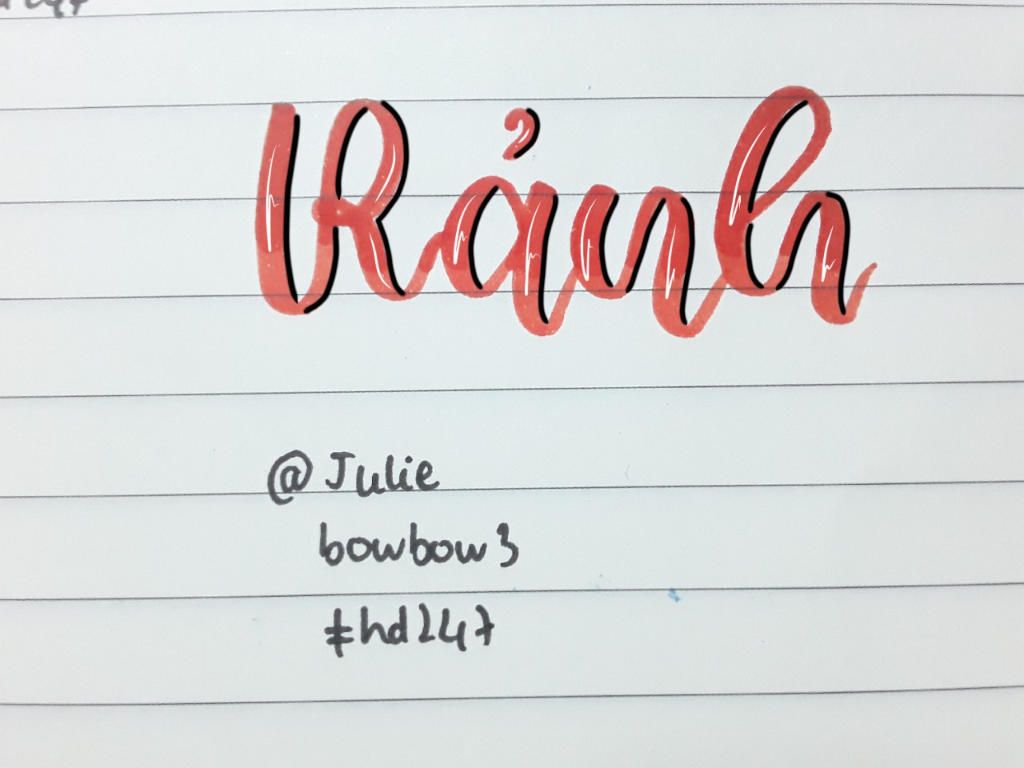 Rảnh
@Julie
bowbow3
#hd247